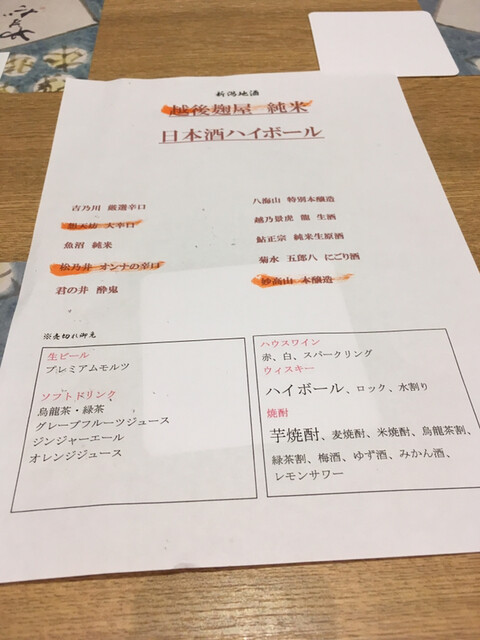 新潟地酒
越後麹屋 純米
日本酒ハイボール
吉乃川 厳選辛口
想天坊 大辛口
魚沼 純米
松乃井 オンナの辛口
君の井 酔鬼
八海山 特別本醸造
越乃景虎 龍 生酒
鮎正宗 純米生原酒
菊水 五郎八 にごり酒
妙高山 本醸造
※売切れ御免
生ビール
プレミアムモルツ
ソフトドリンク
烏龍茶・緑茶
グレープフルーツジュース
ジンジャーエール
オレンジジュース
ハウスワイン
赤、白、スパークリング
ウィスキー
ハイボール、ロック、水割り
焼酎
芋焼酎、麦焼酎、米焼酎、烏龍茶割、
緑茶割、梅酒、ゆず酒、みかん酒、
レモンサワー